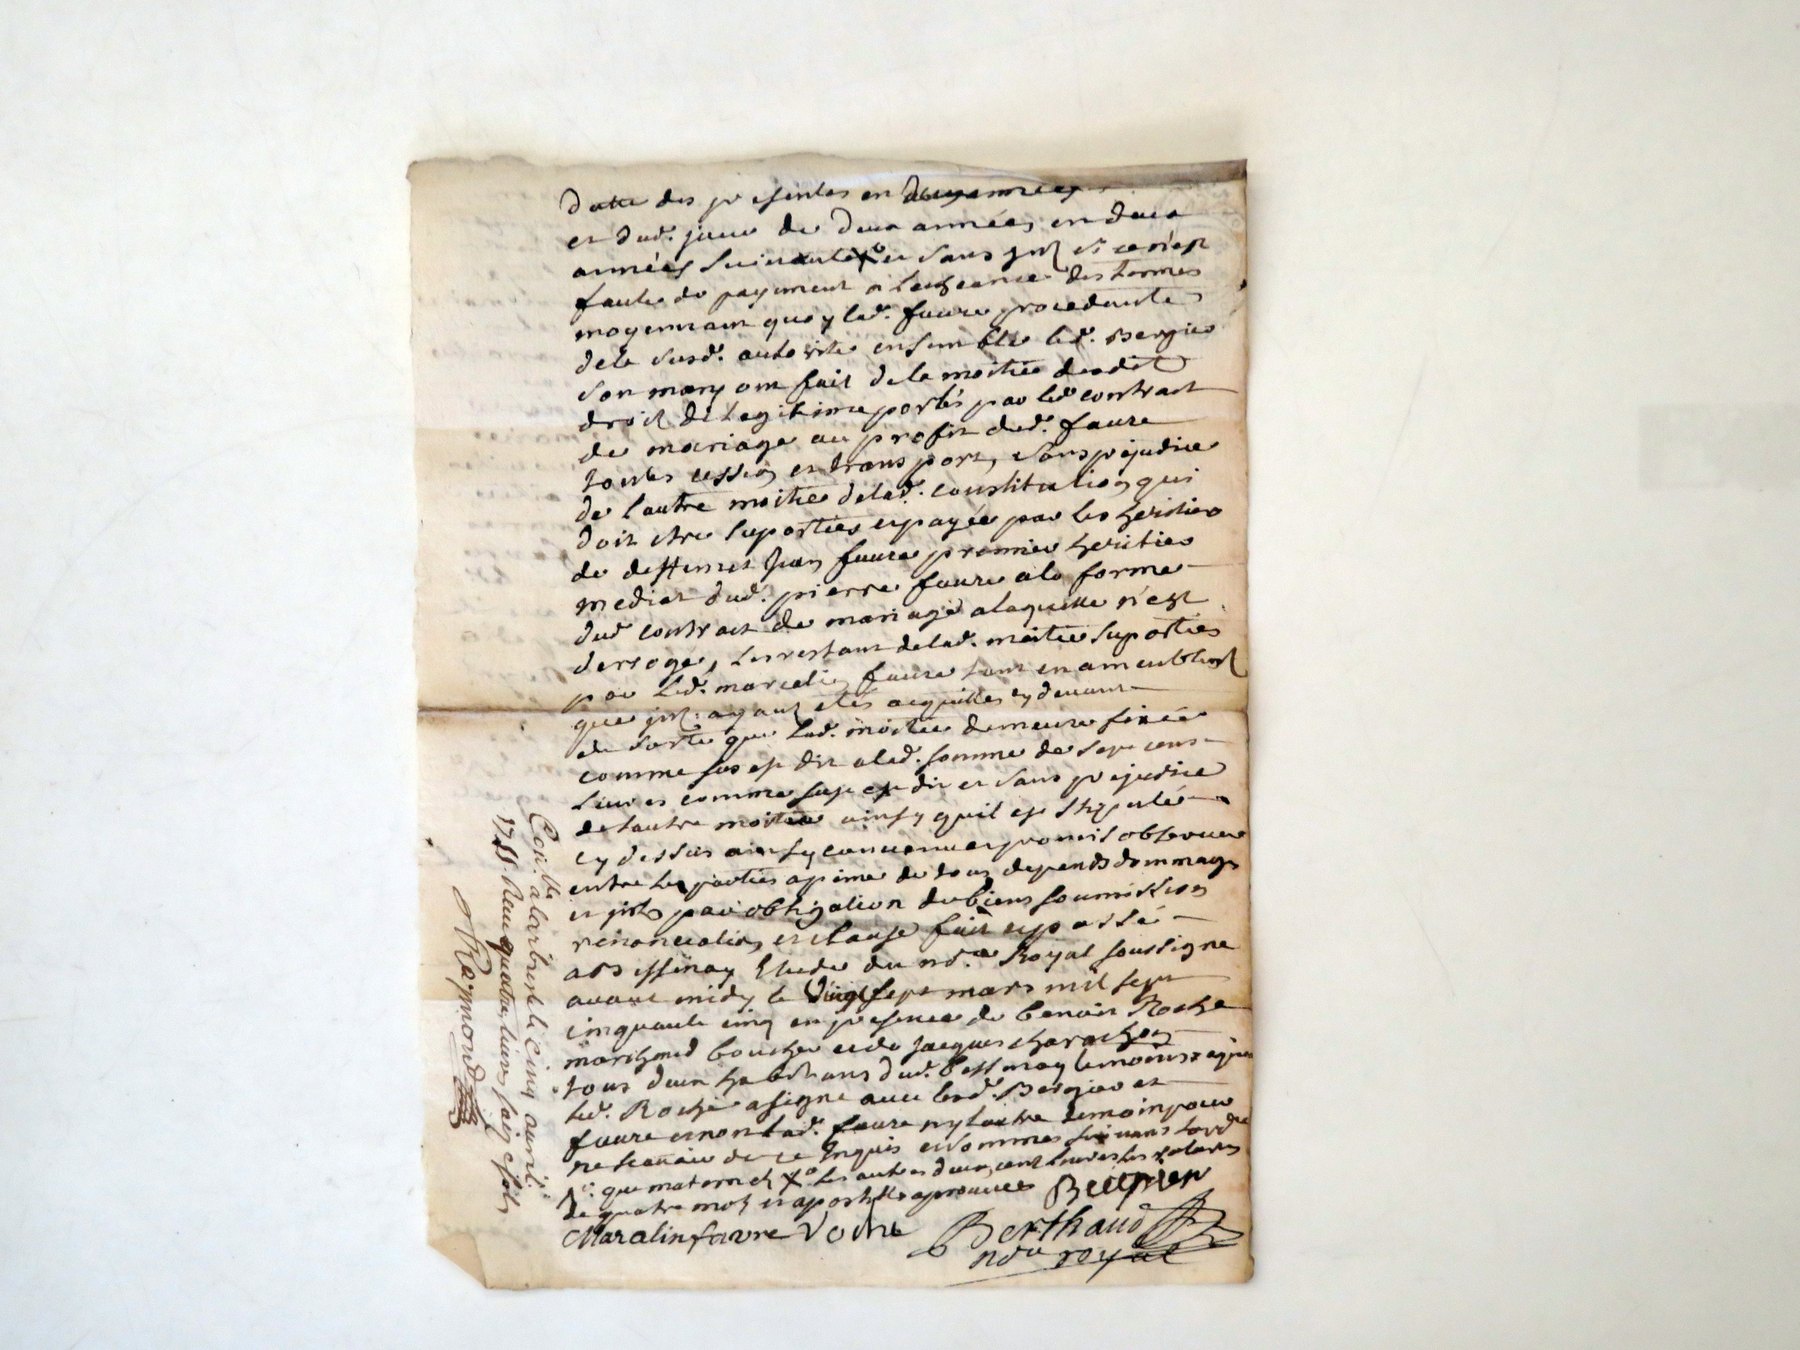 datte des presentes en
et dud. jour de deux années en deux
années suivantes et sans jnt si ce n'est
faute de payement a lecheance des termes
moyennant quoy lad. faure procedante
de la susd. autorité ensemble led. Bergier
son mary ont fait de la moitié desdt
droit de Legitime portés par led. contract
de mariage au profit dud. faure
toutes cession et transport, sans prejudice
de l'autre moitié de lad. constitution qui
doit etre suportée et payée par les heritiers
de deffunct Jean faure premier heritier
mediat dud. pierre faure a la forme
dud. contract de mariage a laquelle n'est
derrogé, Le restant de lad. moitié suportée
par Led. marcelin faure tant en ameublent
que jnt. ayant etés acquittés cy devant
de sorte que Lad. moitié demeure fixée
comme sus est dit a lad. somme de sept cens
Livres comme sus est dit et sans prejudice
de l'autre moitié ainsy quil est stypulé
cy dessus ainsy convenu et promis observer
entre les parties a peine de tous depends dommages
et jnts par obligation de biens soumission
renonciation et clause fait et passé
a Bessenay Etude du nore Royal soussigné
avant midy le vingt sept mars mil sept
cinquante cinq en presence de benoit Roche
marchand boucher et de jacques charachon
tous deux habitans dud. bessenay temoins requis
Led. Roche a signé avec lesd. Bergier et
faure et non lad. faure ny l'autre temoin pour
ne scavoir de ce Enquis et sommés suivant Lord.ce
que maternels X les autres deux cent livres les ratures
de quatre mots et apostilles aprouvées Bergier
Maralin favre Roche Berthaud
nore royal
Con.lle a larbresle le cinq avril
1755. Reçu quatre livres seize sols
Raymond